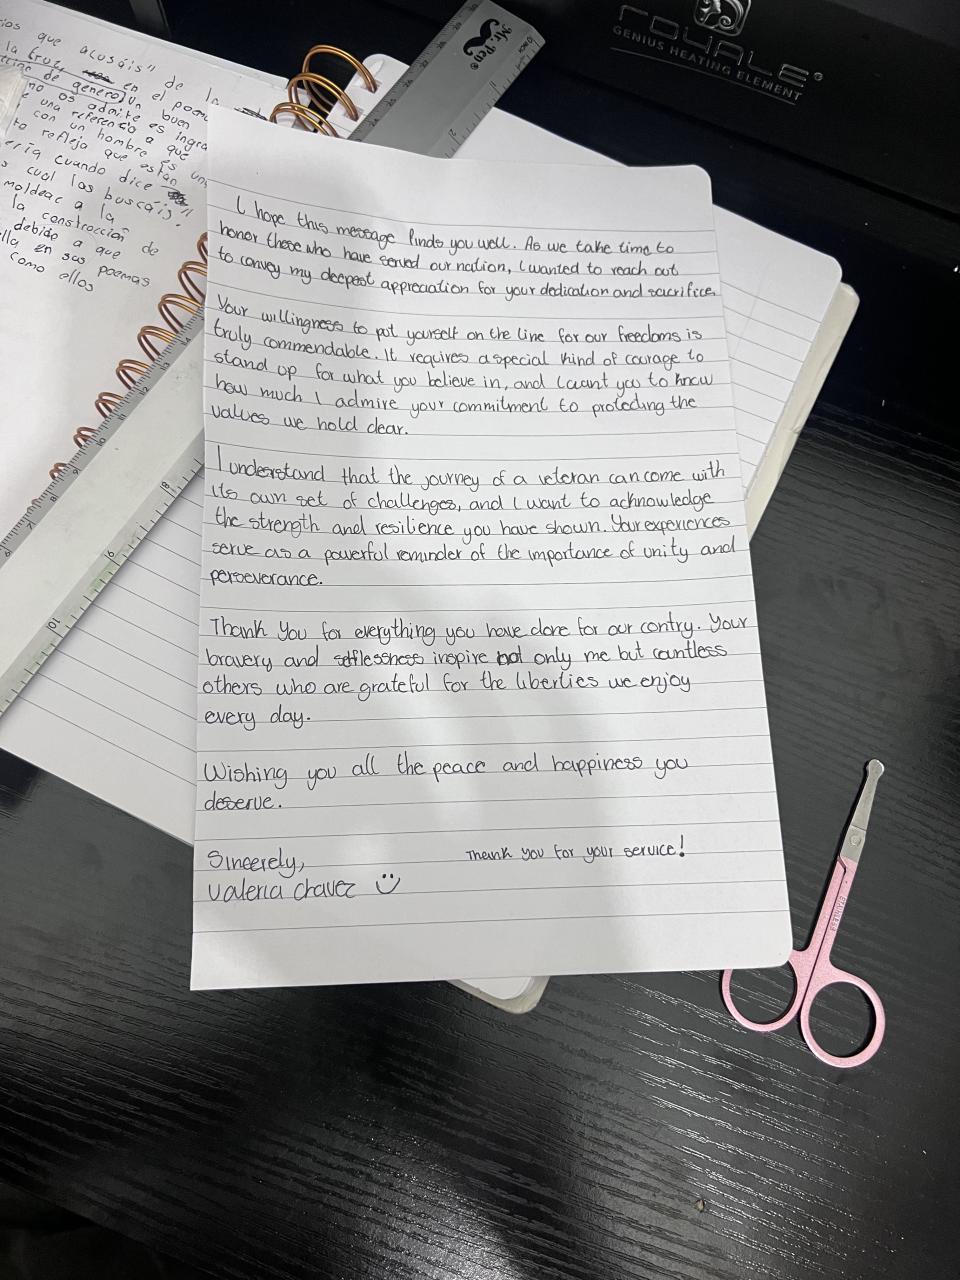 ios que acusáis" de la
la fruta en el poema
de género) un buen
no os admite es ingra
una referencia a que
con un hombre es una
to refleja que están
ería cuando dice
cual los buscáis"
moldear a la
la construcción de
debido a que
ella en sus poemas
como ellos
Mr. Pen
ROYALE
GENIUS HEATING ELEMENT
I hope this message finds you well. As we take time to
honor those who have served our nation, I wanted to reach out
to convey my deepest appreciation for your dedication and sacrifice.
Your willingness to put yourself on the line for our freedoms is
truly commendable. It requires a special kind of courage to
stand up for what you believe in, and I want you to know
how much I admire your commitment to protecting the
values we hold dear.
I understand that the journey of a veteran can come with
its own set of challenges, and I want to acknowledge
the strength and resilience you have shown. Your experiences
serve as a powerful reminder of the importance of unity and
perseverance.
Thank You for everything you have done for our contry. Your
bravery and selflessness inspire not only me but countless
others who are grateful for the liberties we enjoy
every day.
Wishing you all the peace and happiness you
deserve.
Sincerely,
Thank you for your service!
Valeria Chavez
STAINLESS